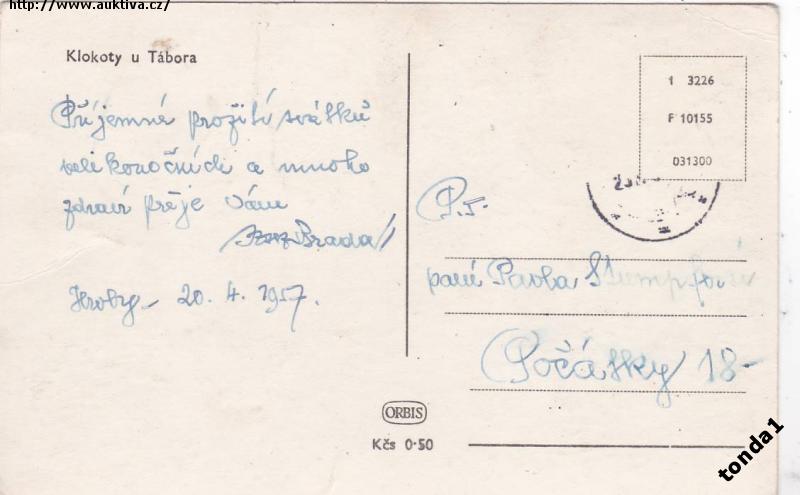 http://www.auktiva.cz/
Klokoty u Tábora
Příjemné prožití svátků
velikonočních a mnoho
zdraví přeje Vám
Brada
Hroby 20. 4. 1957.
1 3226
F 10155
031300
P.T.
paní Pavla Stumpfová
Počátky 18-
ORBIS
Kčs 0·50
tonda1